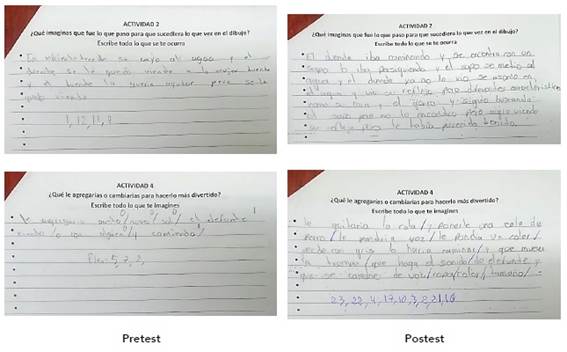 ACTIVIDAD 2
¿Qué imaginas que fue lo que paso para que sucediera lo que vez en el dibujo?
Escribe todo lo que se te ocurra
se cayo al agua y el
duende se le quedo viendo a la mujer duende
y el duende la queria ayudar pero se la
quedo viendo
1, 12, 11, 9
ACTIVIDAD 2
¿Qué imaginas que fue lo que paso para que sucediera lo que vez en el dibujo?
Escribe todo lo que se te ocurra
El duende iba caminando y se encontro con un
sapo lo iba y el sapo se metio al
agua y el duende ya no lo vio se asomo en
el agua y vio su reflejo pero diferentes
como su cara, y el gorro y siguio buscando
al sapo pero no lo encontro pero siguio viendo
su reflejo pero le habia parecido bonito
ACTIVIDAD 4
¿Qué le agregarias o cambiarias para hacerlo más divertido?
Escribe todo lo que te imagines
le agregaria / sol / el elefante
o con alguien / caminando/
5, 2, 2,
ACTIVIDAD 4
¿Qué le agregarias o cambiarias para hacerlo más divertido?
Escribe todo lo que te imagines
le quitaria la cola / y ponerle una cola de
perro / le pondria voz / le pondria un color /
verde con gris lo haria caminar / y que mueva
la trompa / que haga el sonido de elefante y
que se cambie de voz/ropa/color/tamaño/
23, 22, 4, 17, 10, 3, 8, 21, 16
Pretest
Postest